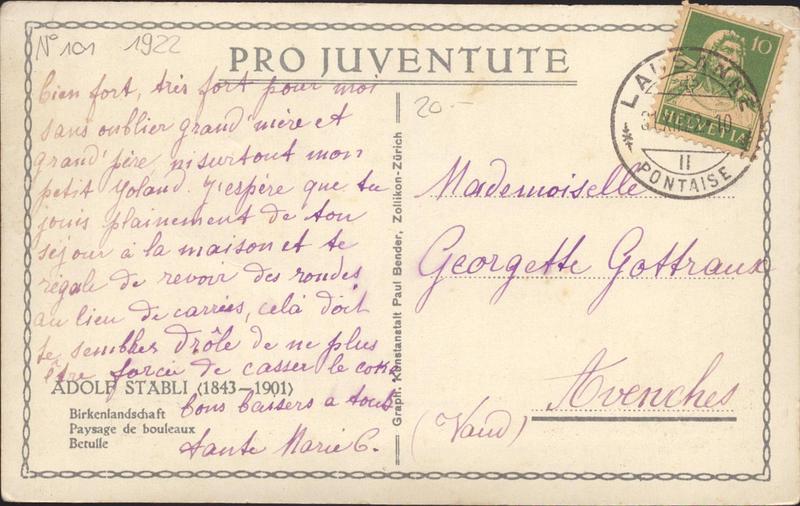 N° 101 1922
PRO JUVENTUTE
bien fort, très fort pour moi
sans oublier grand'mère et
grand'père ni surtout mon
petit Yoland. J'espère que tu
jouis plainement de ton
séjour à la maison et te
régale de revoir des rondes
au lieu de carrées, celà doit
te sembler drôle de ne plus
être forcée de casser le coke
ADOLF STÄBLI (1843–1901)
Birkenlandschaft
Paysage de bouleaux
Betulle
bons baisers a tous
tante Marie C.
Graph. Kunstanstalt Paul Bender, Zollikon-Zürich
20.-
10
HELVETIA
LAUSANNE
PONTAISE
II
Mademoiselle
Georgette Gottraux
Avenches
(Vaud)